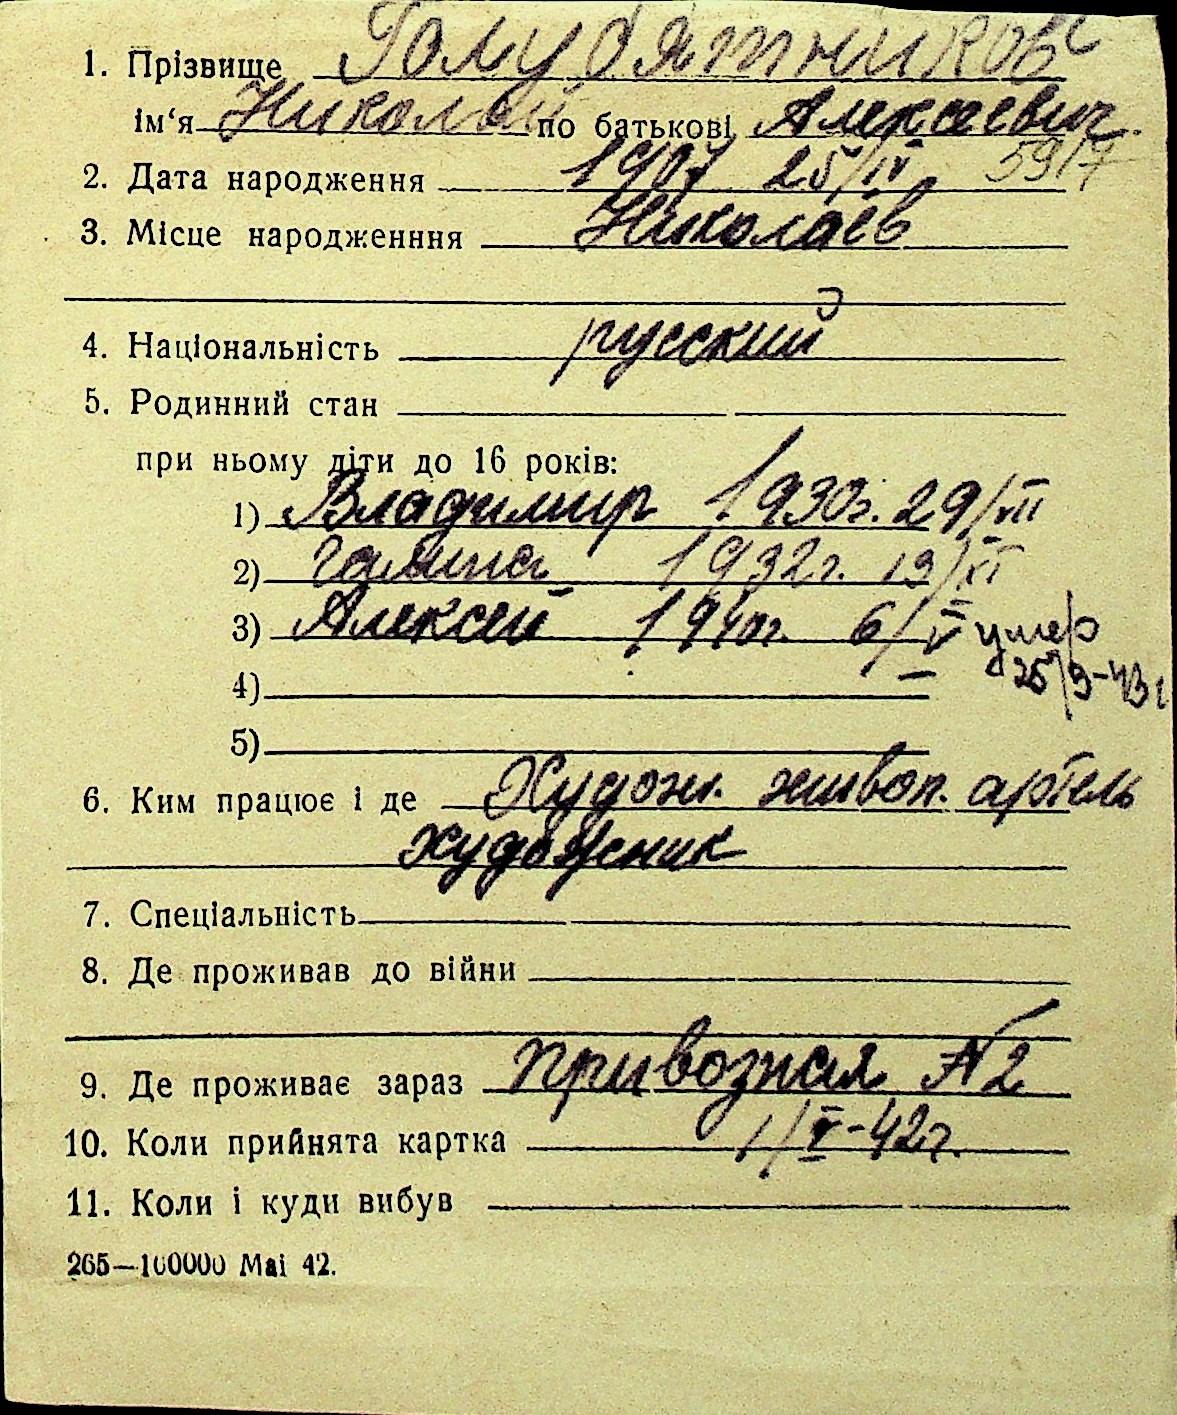 1. Прізвище Голубятников
ім‘я Николай по батькові Алексеевич
2. Дата народження 1907 25/IV 5917
3. Місце народженння Николаев
4. Національність русский
5. Родинний стан
при ньому діти до 16 років:
1) Владимир 1930г. 29/VII
2) Галина 1932г. 13/XI
3) Алексей 1940г. 6/V умер
25/9-43г
4)
5)
6. Ким працює і де Худож. живоп. артель
художник
7. Спеціальність
8. Де проживав до війни
9. Де проживає зараз Привозная №2
10. Коли прийнята картка 1/V-42г.
11. Коли і куди вибув
265—100000 Маі 42.